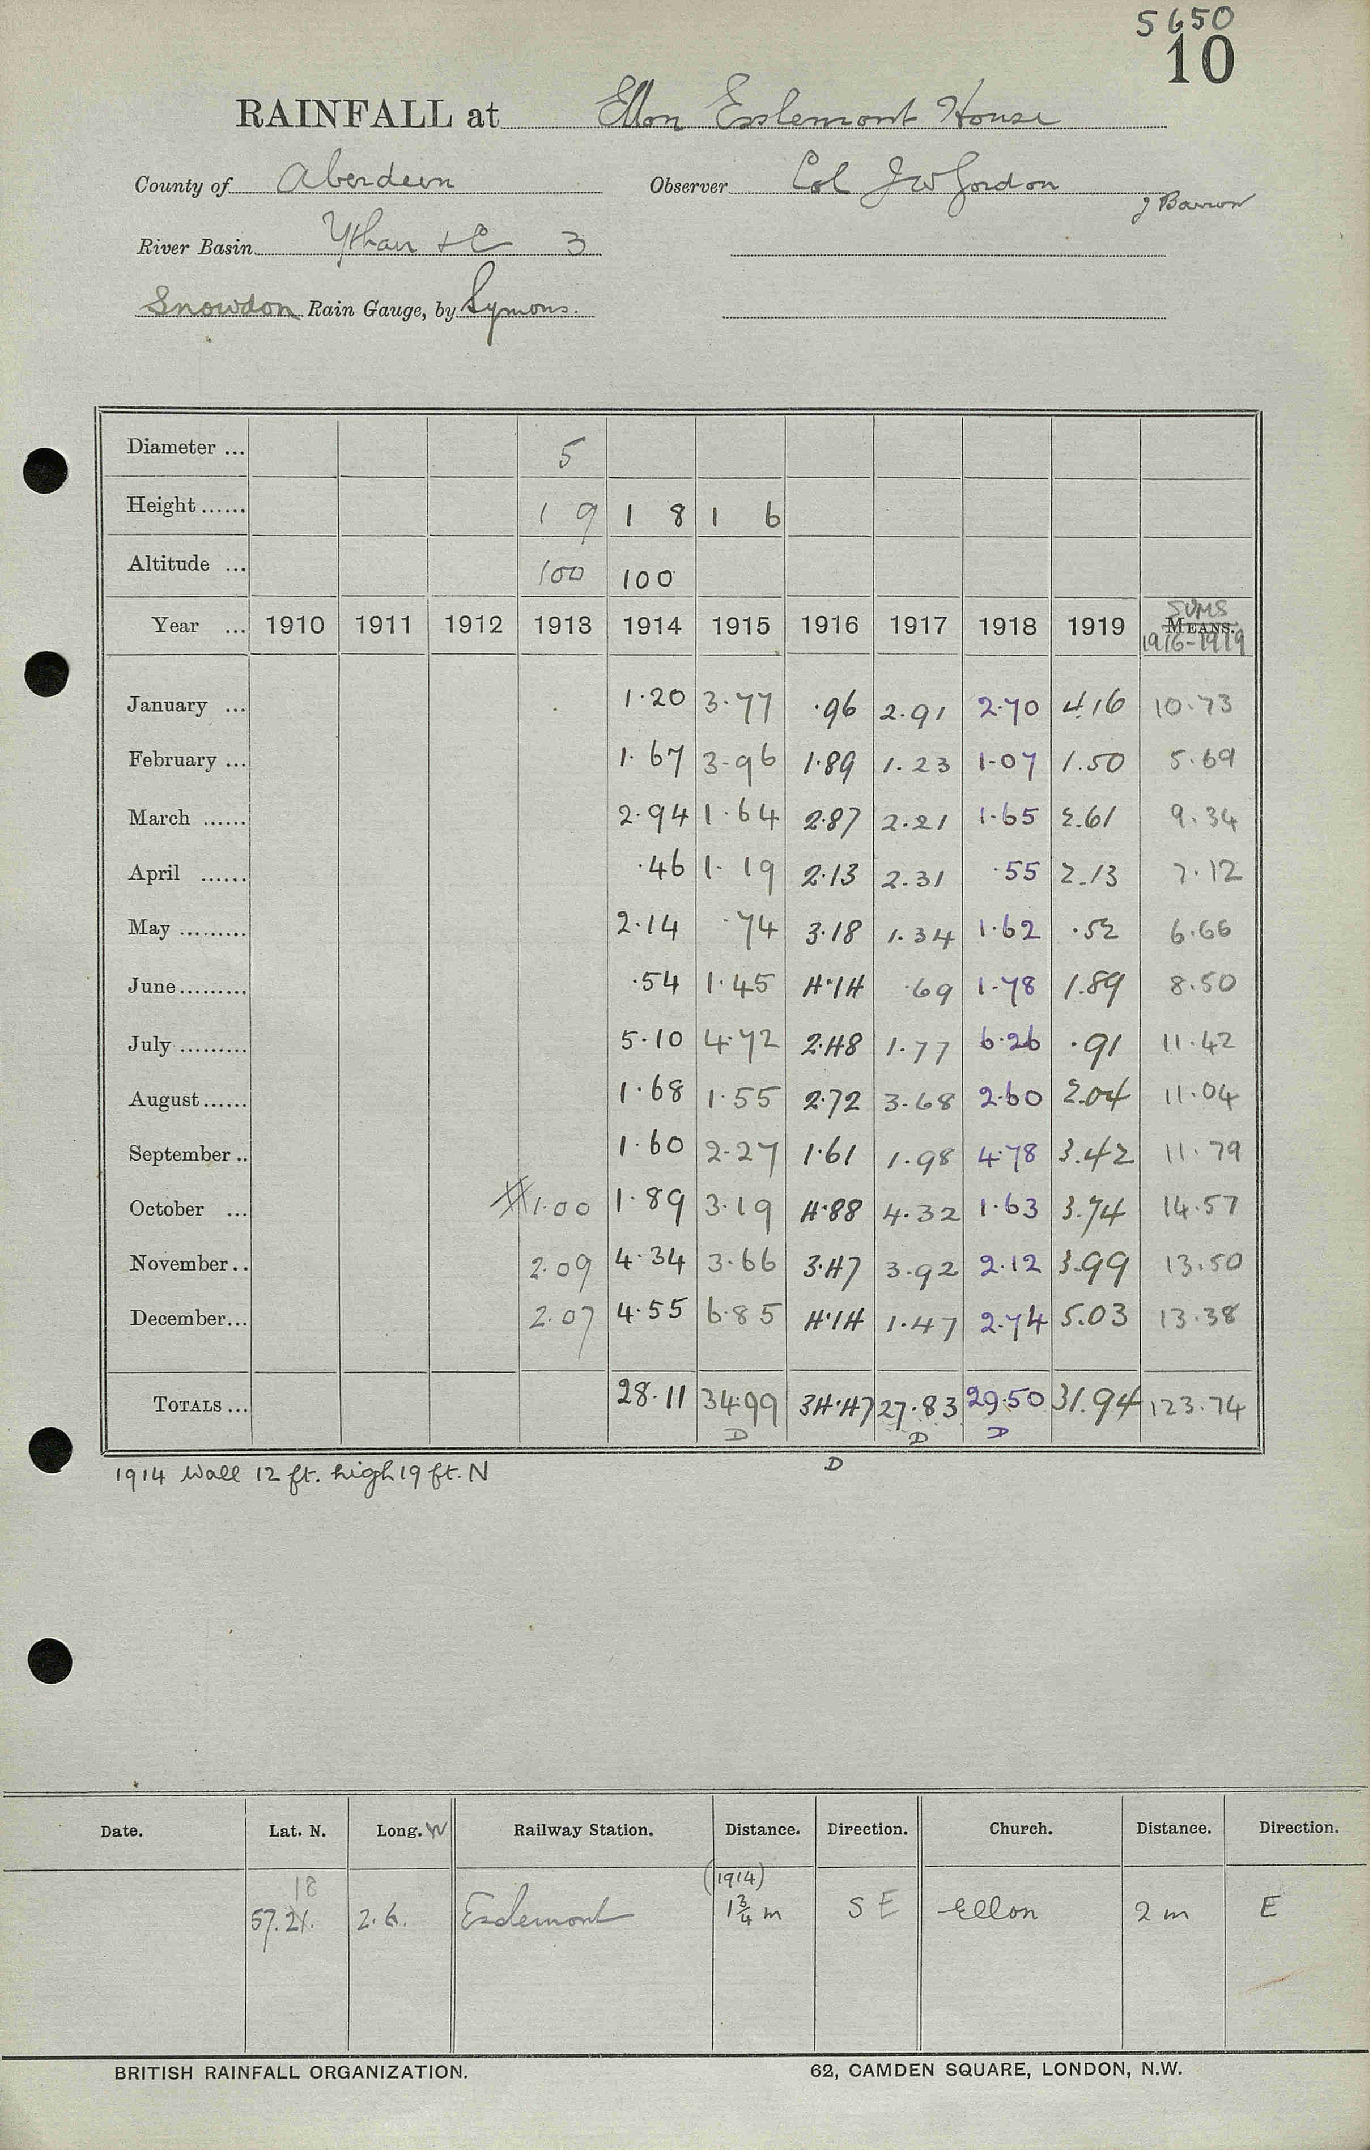 5650
10
RAINFALL at Ellon Esslemont House
County of Aberdeen Observer Col J W Gordon
J Barron
River Basin Ythan &c 3
Snowdon Rain Gauge, by Symons.
Diameter ... 5
Height ...... 1 9 1 8 1 6
Altitude ... 100 100
Year ... 1910 1911 1912 1913 1914 1915 1916 1917 1918 1919 SUMS MEANS. 1916-1919
January ... 1.20 3.77 .96 2.91 2.70 4.16 10.73
February ... 1.67 3.96 1.89 1.23 1.07 1.50 5.69
March ...... 2.94 1.64 2.87 2.21 1.65 2.61 9.34
April ...... .46 1.19 2.13 2.31 .55 2.13 7.12
May ......... 2.14 .74 3.18 1.34 1.62 .52 6.66
June ......... .54 1.45 4.14 .69 1.78 1.89 8.50
July ......... 5.10 4.72 2.48 1.77 6.26 .91 11.42
August ...... 1.68 1.55 2.72 3.68 2.60 2.04 11.04
September .. 1.60 2.27 1.61 1.98 4.78 3.42 11.79
October ... 1.00 1.89 3.19 4.88 4.32 1.63 3.74 14.57
November .. 2.09 4.34 3.66 3.47 3.92 2.12 3.99 13.50
December ... 2.07 4.55 6.85 4.14 1.47 2.74 5.03 13.38
TOTALS ... 28.11 34.99 34.47 27.83 29.50 31.94 123.74
D D D D
1914 Wall 12 ft. high 19 ft. N
Date. Lat. N. Long. W Railway Station. Distance. Direction. Church. Distance. Direction.
18 (1914)
57.21. 2.6. Esslemont 1 3/4 m S E Ellon 2 m E
BRITISH RAINFALL ORGANIZATION. 62, CAMDEN SQUARE, LONDON, N.W.